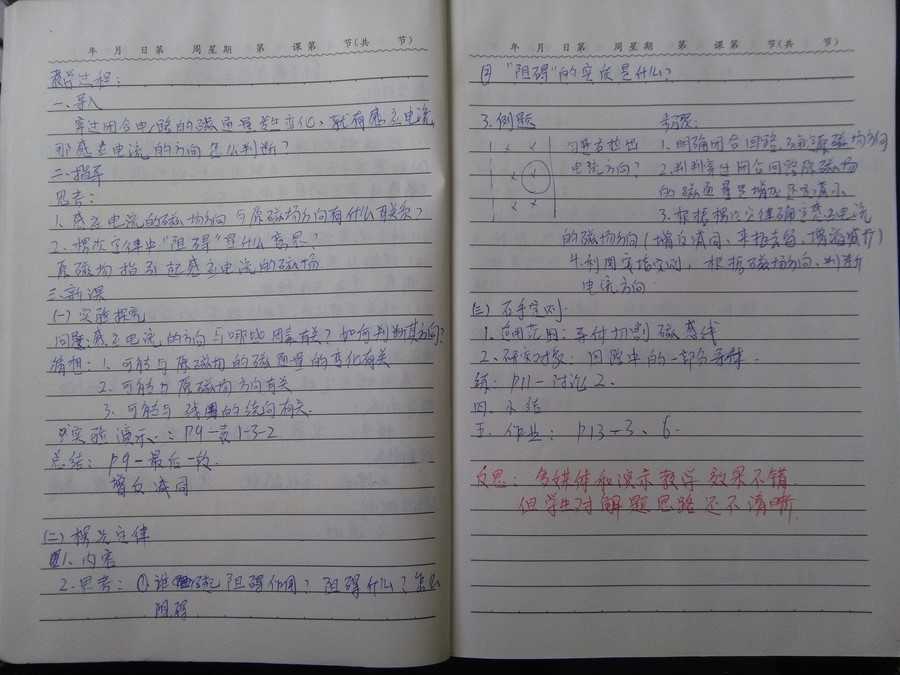 年 月 日第 周星期 第 课第 节(共 节)
教学过程:
一、导入
穿过闭合电路的磁通量发生变化,就有感应电流
那感应电流的方向怎么判断?
二、指导
思考:
1. 感应电流的磁场方向与原磁场方向有什么关系?
2. 楞次定律中"阻碍"是什么意思?
原磁场指引起感应电流的磁场
三、新课
(一) 实验探究
问题:感应电流的方向与哪些因素有关?如何判断其方向?
猜想: 1. 可能与原磁场的磁通量的变化有关
2. 可能与原磁场方向有关
3. 可能与线圈的绕向有关.
实验演示: P9-表1-3-2
总结: P9-最后一段
增反减同
(二) 楞次定律
1、内容
2. 思考: ① 谁起阻碍作用? 阻碍什么? 怎么
阻碍
年 月 日第 周星期 第 课第 节(共 节)
② "阻碍"的实质是什么?
3. 例题 步骤:
向右拉出 1. 明确闭合回路,原磁场方向
电流方向? 2. 判断穿过闭合回路原磁场
的磁通量是增加还是减小
3. 根据楞次定律确定感应电流
的磁场方向(增反减同、来拒去留、增缩减扩)
4. 利用安培定则,根据磁场方向,判断
电流方向
(三) 右手定则.
1. 适用范围: 导体切割磁感线
2. 研究对象: 回路中的一部分导体.
练: P11-讨论2.
四. 小结
五. 作业: P13-3、6.
反思: 多媒体和演示教学效果不错.
但学生对解题思路还不清晰.